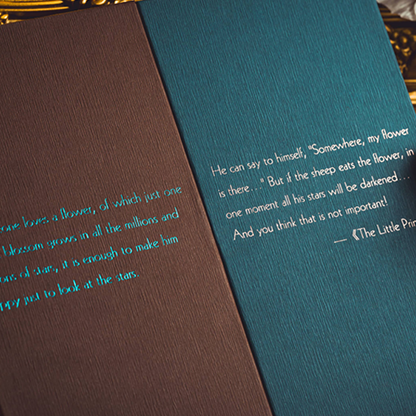 one loves a flower, of which just one
blossom grows in all the millions and
of stars, it is enough to make him
just to look at the stars.
He can say to himself, "Somewhere, my flower
is there..." But if the sheep eats the flower, in
one moment all his stars will be darkened...
And you think that is not important!
—《The Little